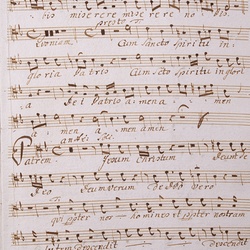 bis miserere misere re no bis
presto
Cum Sancto Spiritu in
gloria Patris Cum Sto Spiritu in glori
a Dei Patris a men a men
a men a men amen
andte
Patrem Jesum Christum
Deum verum de Deo vero
qui propter nos homines et propter nostram
descendit descendit